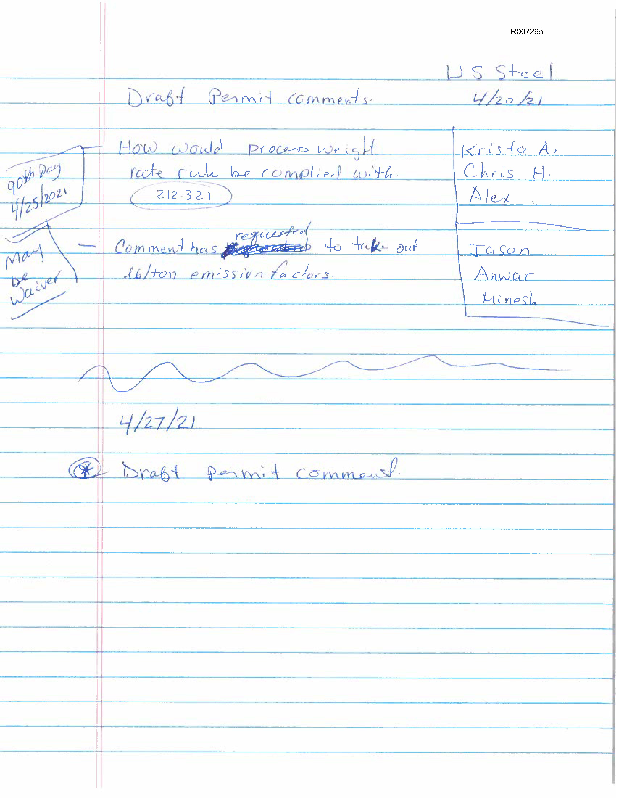 R007295
US Steel
Draft Permit comments.
4/20/21
How would process weight
rate rule be complied with.
212.321
90th Day
4/25/2021
Krista A.
Chris H.
Alex
requested
— Comment has to take out
lb/ton emission factors.
May
be
Waiver
Jason
Anwar
Minesh
4/27/21
* Draft permit comment.